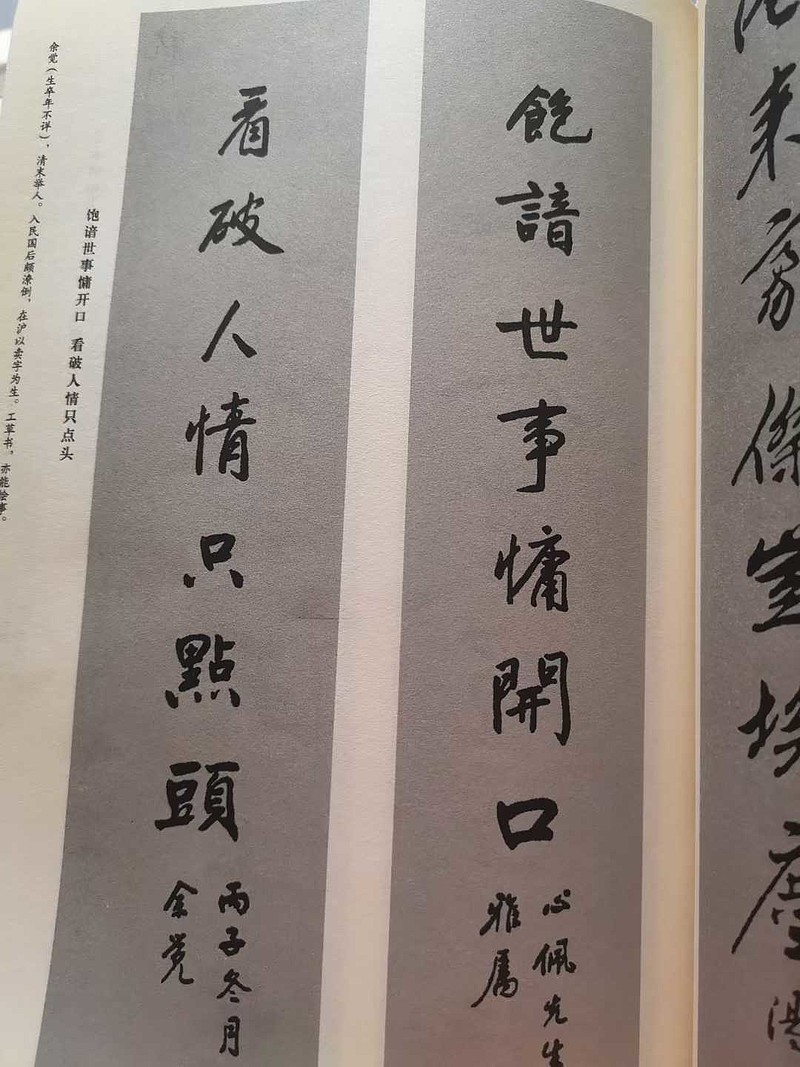 來
傑
飽諳世事慵開口
心佩先生
雅属
看破人情只點頭
丙子冬月
余覺
饱谙世事慵开口 看破人情只点头
余觉（生卒年不详），清末举人。入民国后颇潦倒，在沪以卖字为生。工草书，亦能绘事。